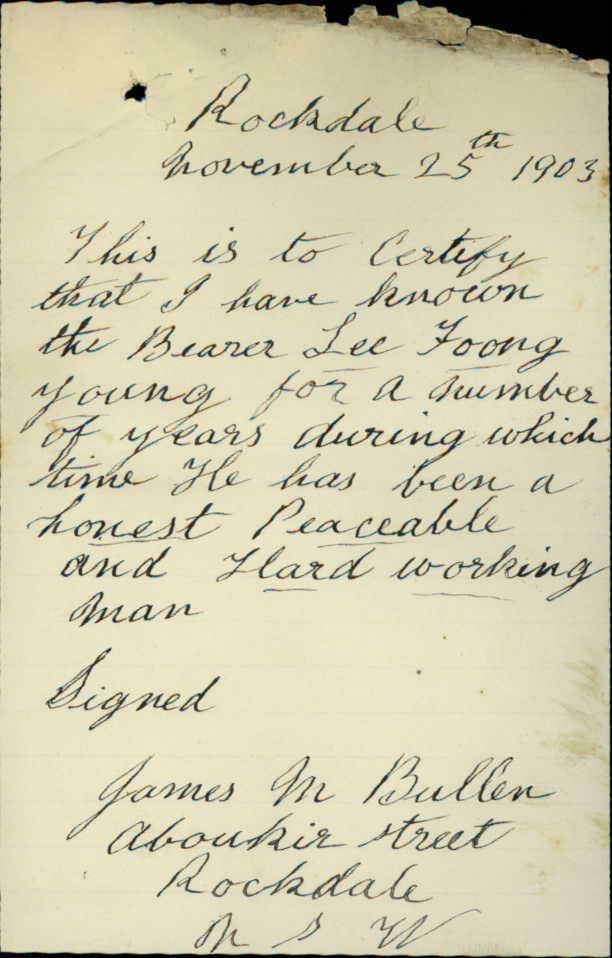 Rockdale
November 25th 1903
This is to Certify
that I have known
the Bearer Lee Foong
young for a number
of years during which
time He has been a
honest Peaceable
and Hard working
man
Signed
James M Bullen
Aboukir street
Rockdale
N S W